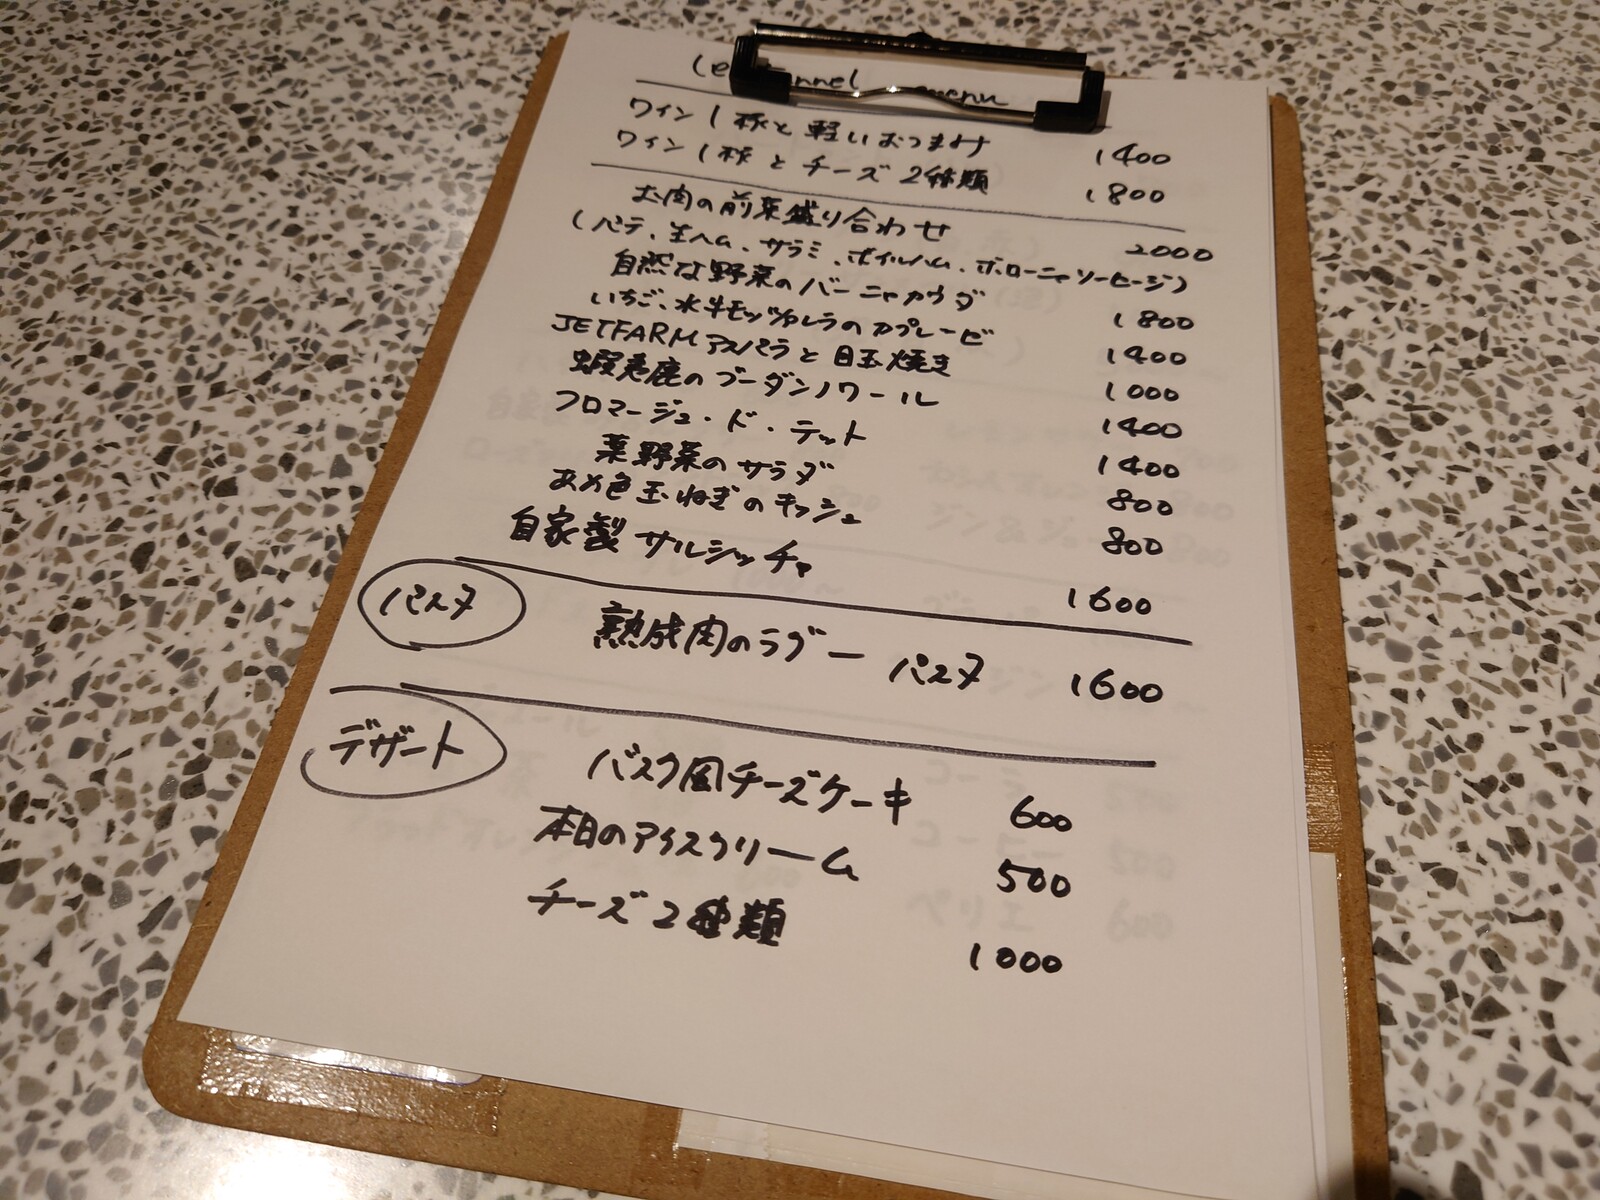 menu
ワイン1杯と軽いおつまみ 1400
ワイン1杯とチーズ2種類 1800
お肉の前菜盛り合わせ 2000
(パテ、生ハム、サラミ、ボイルハム、ボローニャソーセージ)
自然な野菜のバーニャカウダ 1800
いちご、水牛モッツァレラのカプレーゼ 1400
JETFARMアスパラと目玉焼き 1000
蝦夷鹿のブーダンノワール 1400
フロマージュ・ド・テット 1400
葉野菜のサラダ 800
あめ色玉ねぎのキッシュ 800
自家製サルシッチャ 1600
パスタ
熟成肉のラグー パスタ 1600
デザート
バスク風チーズケーキ 600
本日のアイスクリーム 500
チーズ2種類 1000